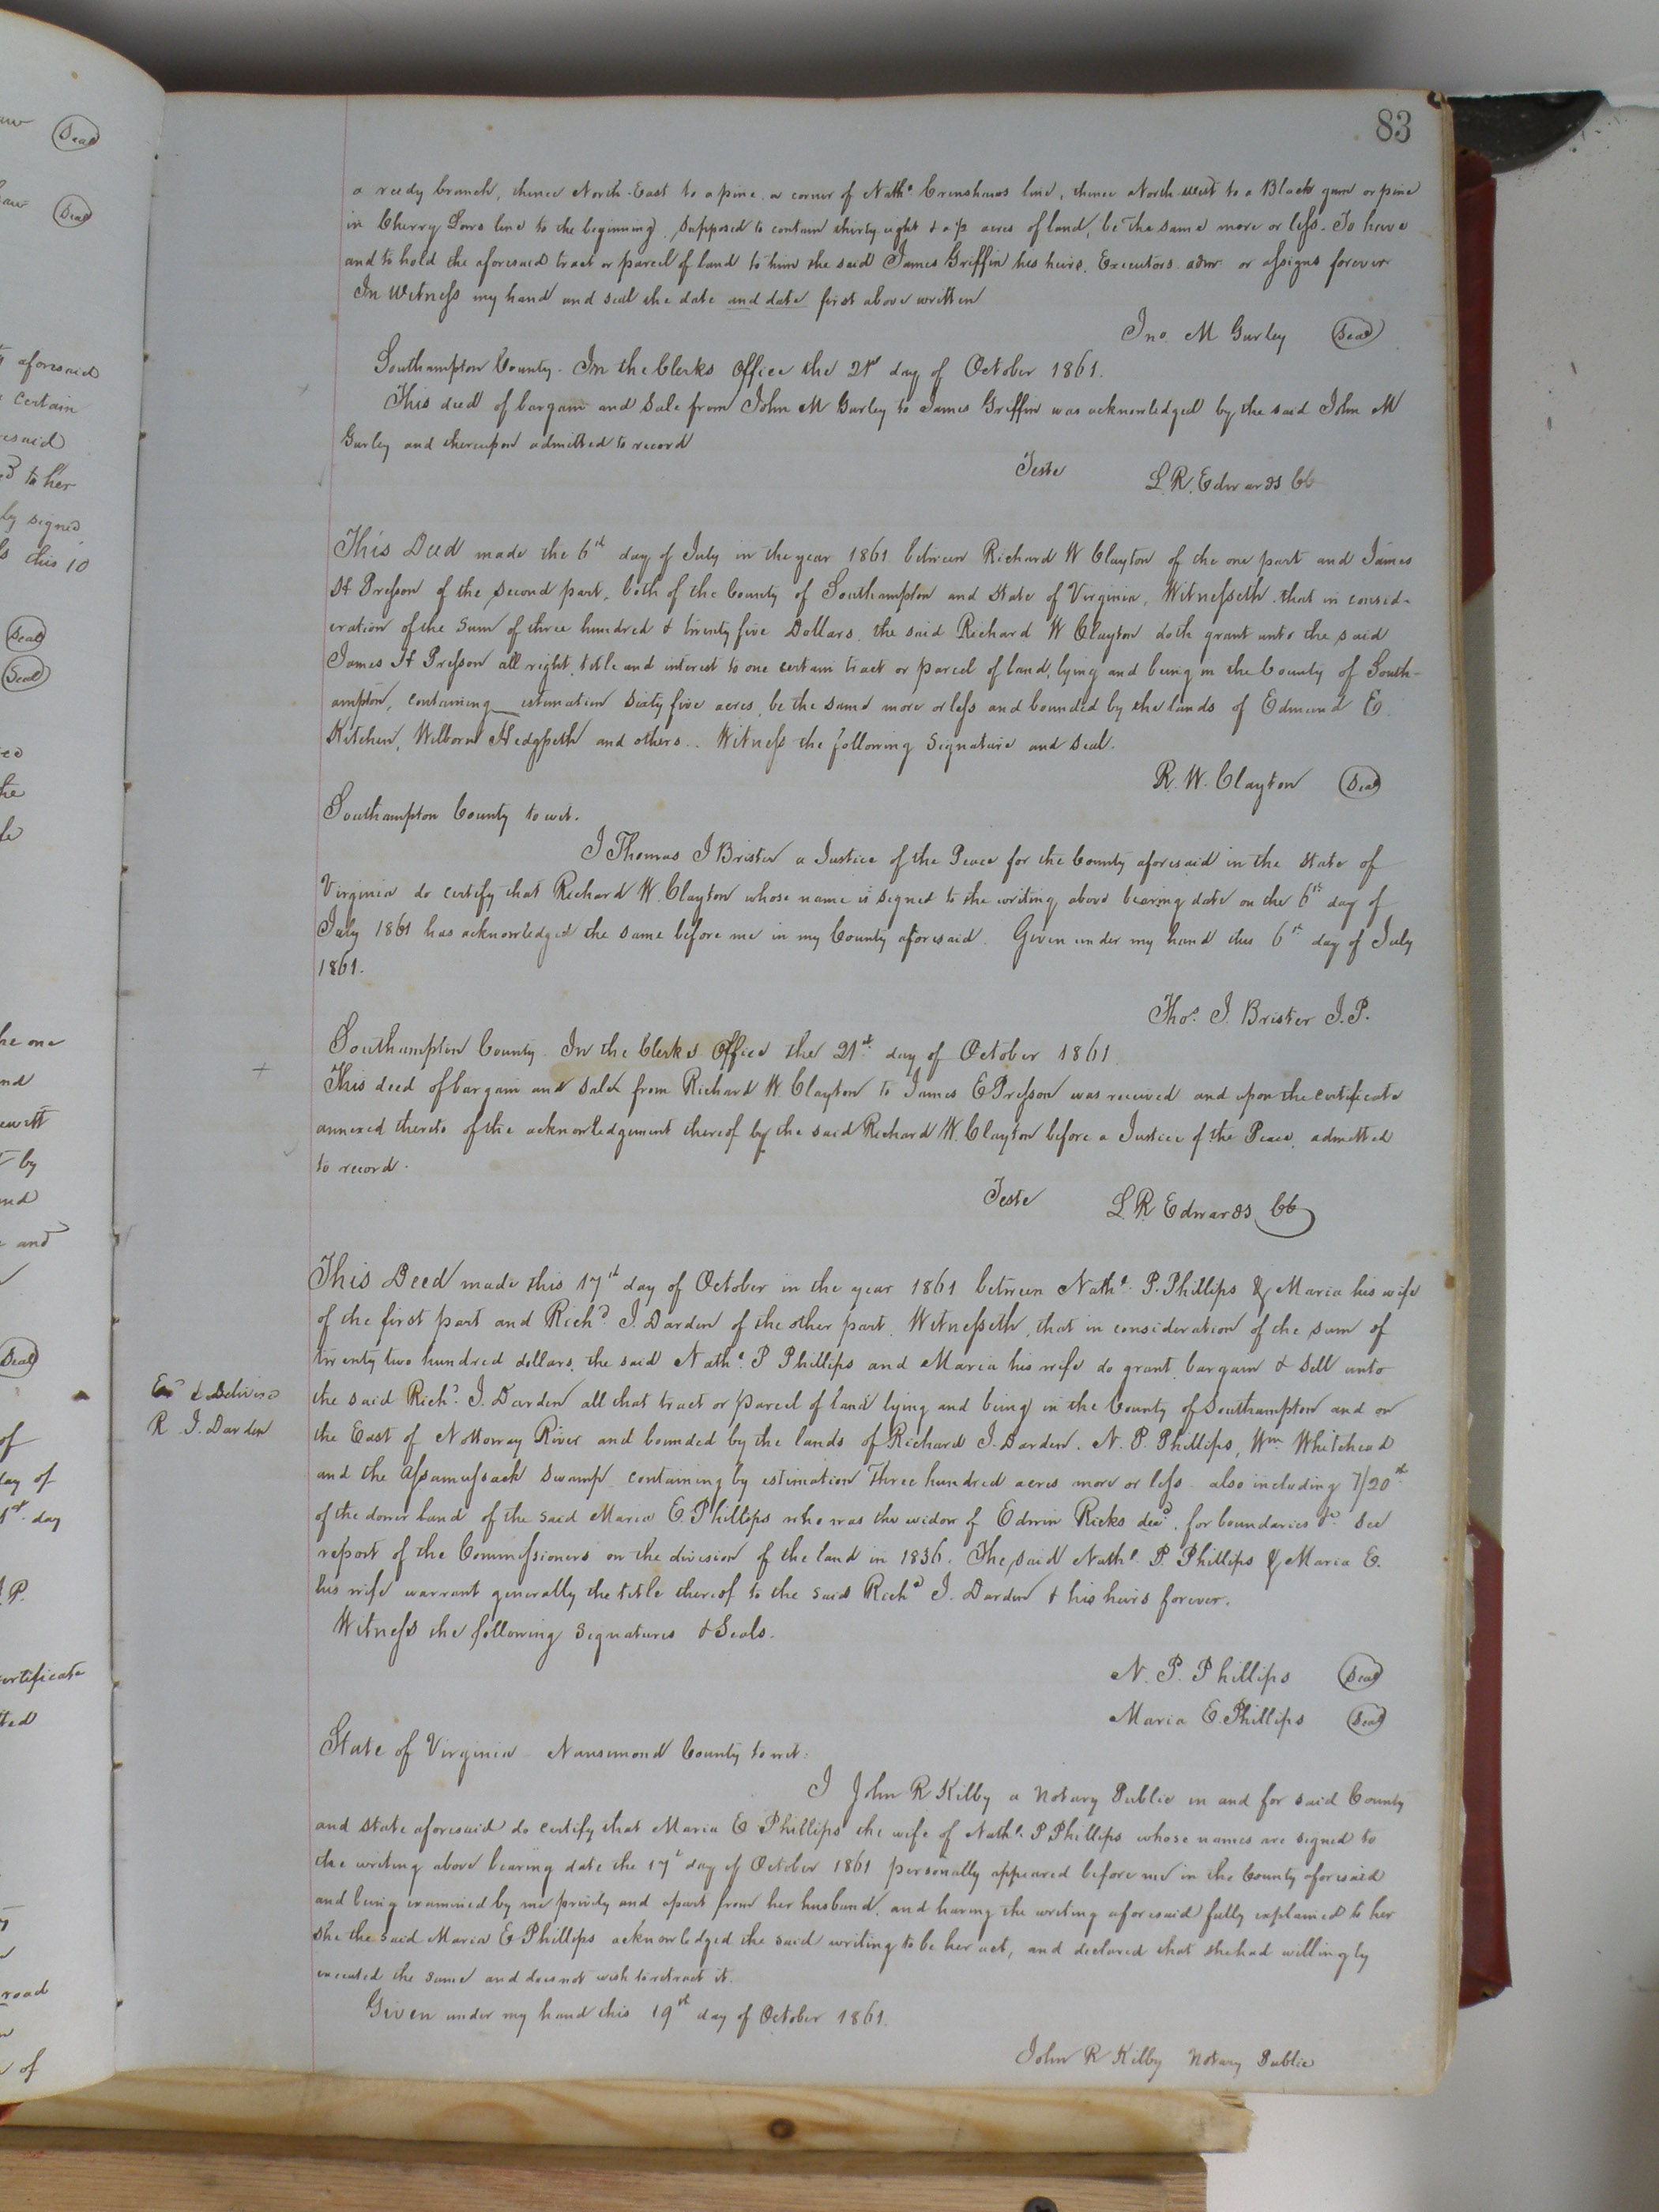 83
a reedy branch, thence North-East to a pine, a corner of Nathl Crenshaws line, thence North-West to a Black gum or pine
in Cherry Lows line to the beginning. Supposed to contain thirty eight & a ½ acres of land, be the same more or less. To have
and to hold the aforesaid tract or parcel of land to him the said James Griffin his heirs, Executors admr or assigns forever
In Witness my hand and seal the date and date first above written
Jno M Gurley Seal
Southampton County. In the Clerks Office the 21st day of October 1861.
This deed of bargain and Sale from John M Gurley to James Griffin was acknowledged by the said John M
Gurley and thereupon admitted to record
Teste L. R. Edwards CC
This Deed made the 6th day of July in the year 1861 between Richard W Clayton of the one part and James
H Presson of the second part, both of the County of Southampton and State of Virginia, Witnesseth that in consid-
eration of the Sum of three hundred & twenty five Dollars, the said Richard W Clayton doth grant unto the said
James H Presson all right, title and interest to one certain tract or parcel of land, lying and being in the County of South-
ampton, containing estimation sixty five acres, be the same more or less and bounded by the lands of Edmund E.
Kitchen, Wilborn Hedgpeth and others.. Witness the following signature and seal.
R. W. Clayton Seal
Southampton County to wit.
I Thomas J Brister a Justice of the Peace for the County aforesaid in the State of
Virginia do certify that Richard W. Clayton whose name is signed to the writing above bearing date on the 6th day of
July 1861 has acknowledged the same before me in my County aforesaid. Given under my hand this 6th day of July
1861.
Thos. J. Brister J.P.
Southampton County. In the Clerk's Office the 21st day of October 1861.
This deed of bargain and sale from Richard W. Clayton to James E Presson was received and upon the certificate
annexed thereto of the acknowledgement thereof by the said Richard W. Clayton before a Justice of the Peace, admitted
to record.
Teste L. R. Edwards CC
This Deed made this 17th day of October in the year 1861 between Nathl. P. Phillips & Maria his wife
of the first part and Richd. J. Darden of the other part. Witnesseth, that in consideration of the sum of
twenty two hundred dollars, the said Nathl. P Phillips and Maria his wife do grant, bargain & sell unto
the said Richd. J. Darden all that tract or parcel of land lying and being in the County of Southampton and on
Exd & Deliverd
R. J. Darden
the East of Nottoway River and bounded by the lands of Richard J. Darden, N. P. Phillips, Wm Whitehead
and the Assamussack Swamp containing by estimation Three hundred acres more or less also including 7/20th
of the dower land of the said Maria E. Phillips who was the widow of Edwin Ricks decd, for boundaries &c see
report of the Commissioners on the division of the land in 1836. The said Nathl. P. Phillips & Maria E.
his wife warrant generally the title thereof to the said Richd J. Darden & his heirs forever.
Witness the following signatures & Seals.
N. P. Phillips Seal
Maria E. Phillips Seal
State of Virginia Nansemond County to wit:
I John R Kilby a Notary Public in and for said County
and State aforesaid do certify that Maria E Phillips the wife of Nathl. P Phillips whose names are signed to
the writing above bearing date the 17th day of October 1861 personally appeared before me in the County aforesaid
and being examined by me privily and apart from her husband, and having the writing aforesaid fully explained to her
she the said Maria E Phillips acknowledged the said writing to be her act, and declared that she had willingly
executed the same and does not wish to retract it.
Given under my hand this 19th day of October 1861.
John R Kilby Notary Public